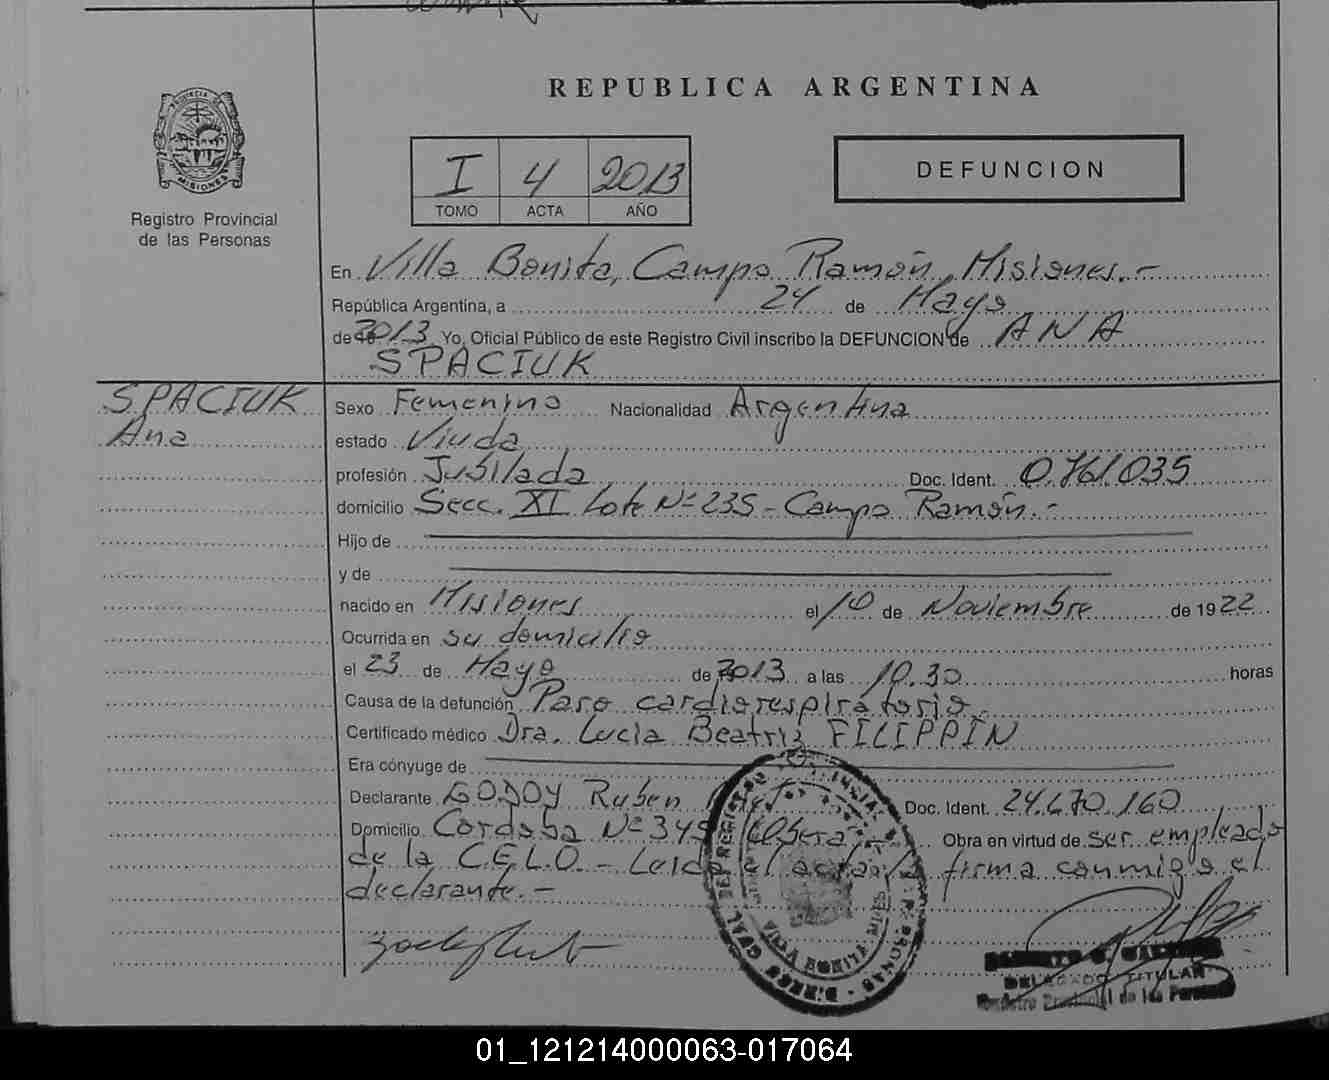 REPUBLICA ARGENTINA
PROVINCIA DE
MISIONES
Registro Provincial
de las Personas
I 4 2013
TOMO ACTA AÑO
DEFUNCION
En Villa Bonita, Campo Ramón, Misiones.-
República Argentina, a 24 de Mayo
de 2013 Yo, Oficial Público de este Registro Civil inscribo la DEFUNCION de ANA
SPACIUK
SPACIUK
Ana
Sexo Femenino Nacionalidad Argentina
estado Viuda
profesión Jubilada Doc. Ident. 0.761.035
domicilio Secc. XI Lote Nº 235 - Campo Ramón.-
Hijo de
y de
nacido en Misiones el 10 de Noviembre de 1922
Ocurrida en su domicilio
el 23 de Mayo de 2013 a las 10.30 horas
Causa de la defunción Paro cardiorespiratorio.
Certificado médico Dra. Lucia Beatriz FILIPPIN
Era cónyuge de
Declarante GODOY Ruben Doc. Ident. 24.670.160
Domicilio Cordoba Nº 349 Obera Obra en virtud de ser empleado
de la C.E.L.O. - Leida el acta la firma conmigo el
declarante.-
VILLA BONITA
DELEGADO TITULAR
Registro Provincial de las Personas
01_121214000063-017064